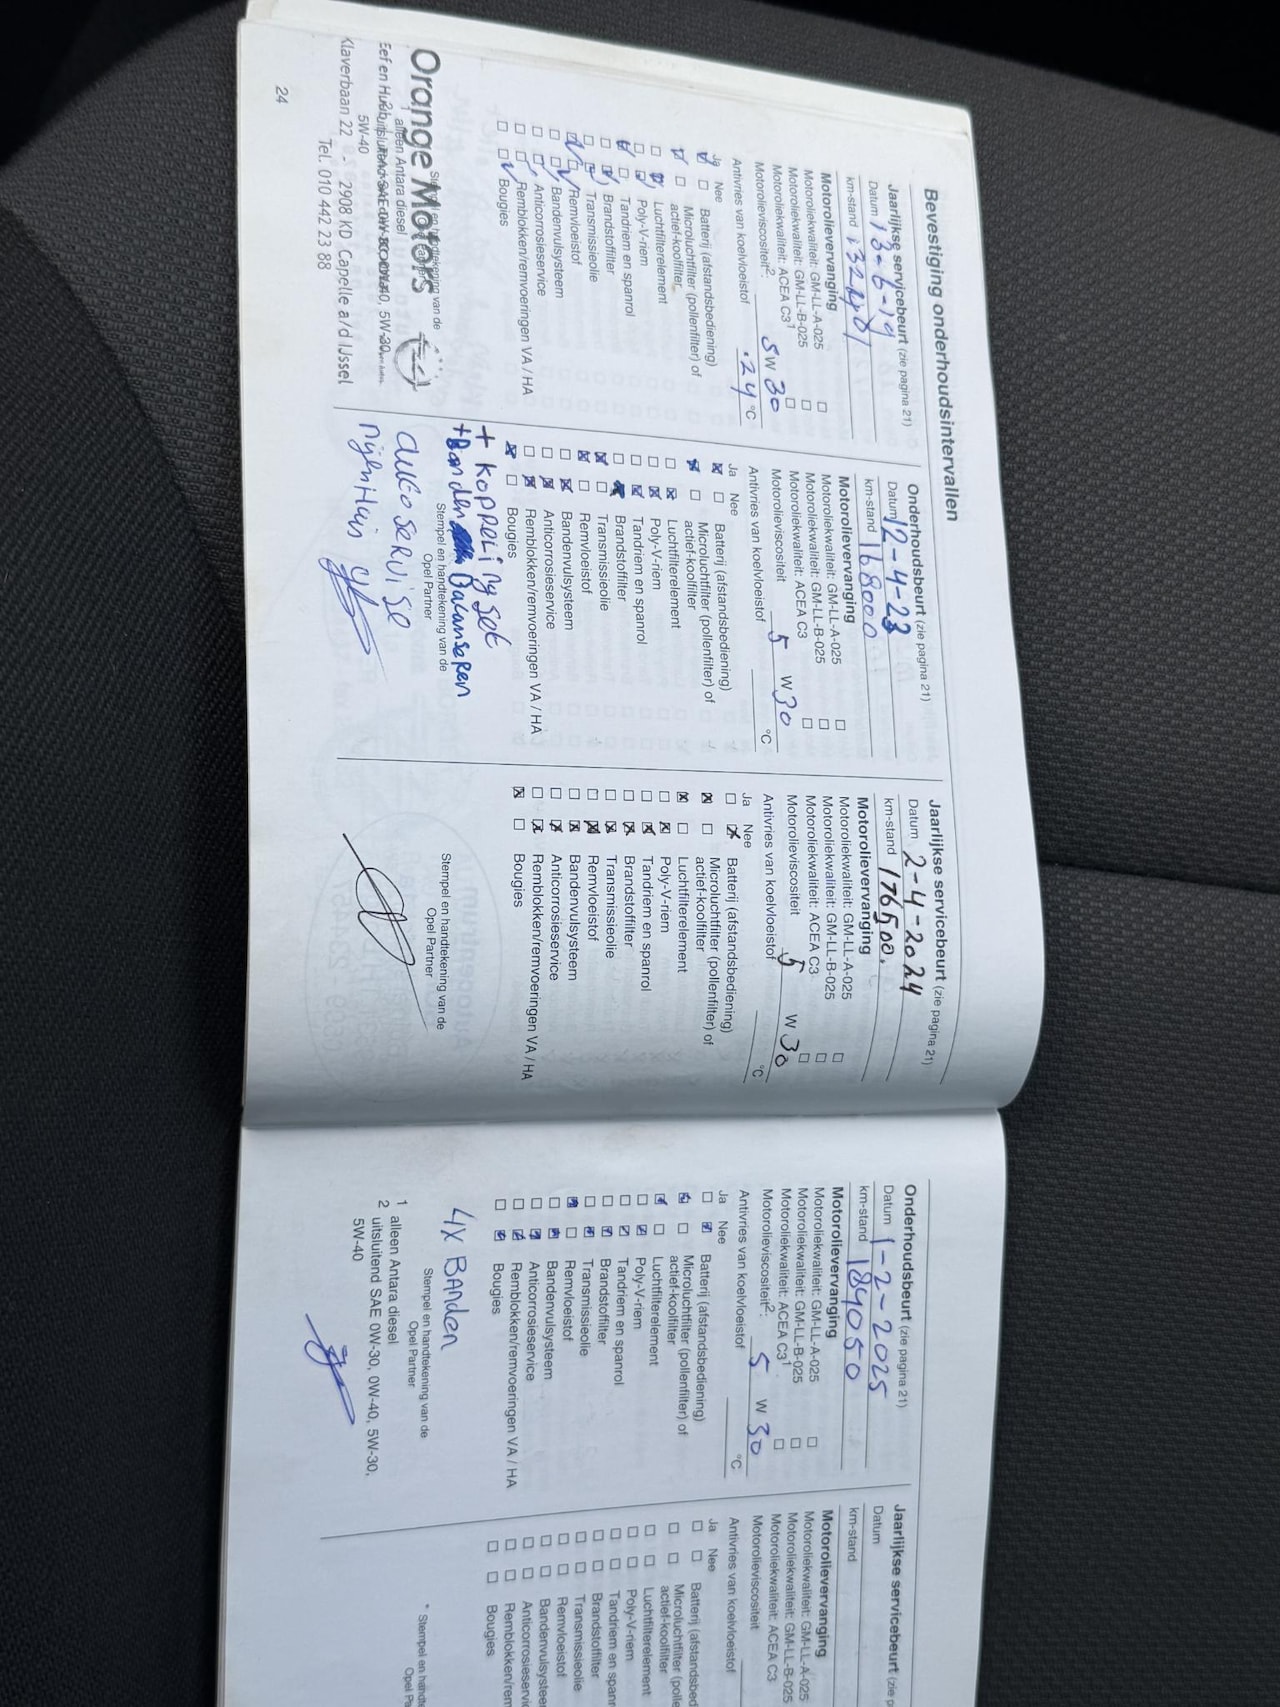 Bevestiging onderhoudsintervallen
Jaarlijkse servicebeurt (zie pagina 21)
Datum 13-6-19
km-stand
Motorolievervanging
Motoroliekwaliteit: GM-LL-A-025 ☐
Motoroliekwaliteit: GM-LL-B-025 ☐
Motoroliekwaliteit: ACEA C3¹ ☐
Motorolieviscositeit²: 5W30
Antivries van koelvloeistof -24 °C
Ja Nee
Batterij (afstandsbediening)
Microluchtfilter (pollenfilter) of
actief-koolfilter
Luchtfilterelement
Poly-V-riem
Tandriem en spanrol
Brandstoffilter
Transmissieolie
Remvloeistof
Bandenvulsysteem
Anticorrosieservice
Remblokken/remvoeringen VA / HA
Bougies
Orange Motors
1 alleen Antara diesel
5W-40
Klaverbaan 22 - 2908 KD Capelle a/d IJssel
Tel. 010 442 23 88
24
Onderhoudsbeurt (zie pagina 21)
Datum 12-4-23
km-stand 168000
Motorolievervanging
Motoroliekwaliteit: GM-LL-A-025 ☐
Motoroliekwaliteit: GM-LL-B-025 ☐
Motoroliekwaliteit: ACEA C3 ☐
Motorolieviscositeit 5 W 30
Antivries van koelvloeistof °C
Ja Nee
Batterij (afstandsbediening)
Microluchtfilter (pollenfilter) of
actief-koolfilter
Luchtfilterelement
Poly-V-riem
Tandriem en spanrol
Brandstoffilter
Transmissieolie
Remvloeistof
Bandenvulsysteem
Anticorrosieservice
Remblokken/remvoeringen VA / HA
Bougies
+ KOPPELINGSET
+Banden Balanseren
Stempel en handtekening van de
Opel Partner
auto servise
Nijenhuis
Jaarlijkse servicebeurt (zie pagina 21)
Datum 2-4-2024
km-stand 176500.
Motorolievervanging
Motoroliekwaliteit: GM-LL-A-025 ☐
Motoroliekwaliteit: GM-LL-B-025 ☐
Motoroliekwaliteit: ACEA C3 ☐
Motorolieviscositeit 5 W 30
Antivries van koelvloeistof °C
Ja Nee
Batterij (afstandsbediening)
Microluchtfilter (pollenfilter) of
actief-koolfilter
Luchtfilterelement
Poly-V-riem
Tandriem en spanrol
Brandstoffilter
Transmissieolie
Remvloeistof
Bandenvulsysteem
Anticorrosieservice
Remblokken/remvoeringen VA / HA
Bougies
Stempel en handtekening van de
Opel Partner
Onderhoudsbeurt (zie pagina 21)
Datum 1-2-2025
km-stand 184050
Motorolievervanging
Motoroliekwaliteit: GM-LL-A-025 ☐
Motoroliekwaliteit: GM-LL-B-025 ☐
Motoroliekwaliteit: ACEA C3¹ ☐
Motorolieviscositeit²: 5 W 30
Antivries van koelvloeistof °C
Ja Nee
Batterij (afstandsbediening)
Microluchtfilter (pollenfilter) of
actief-koolfilter
Luchtfilterelement
Poly-V-riem
Tandriem en spanrol
Brandstoffilter
Transmissieolie
Remvloeistof
Bandenvulsysteem
Anticorrosieservice
Remblokken/remvoeringen VA / HA
Bougies
4x BANDEN
Stempel en handtekening van de
Opel Partner
1 alleen Antara diesel
2 uitsluitend SAE 0W-30, 0W-40, 5W-30,
5W-40
Jaarlijkse servicebeurt (zie p
Datum
km-stand
Motorolievervanging
Motoroliekwaliteit: GM-LL-A-025
Motoroliekwaliteit: GM-LL-B-025
Motoroliekwaliteit: ACEA C3
Motorolieviscositeit
Antivries van koelvloeistof
Ja Nee
Batterij (afstandsbed
Microluchtfilter (polle
actief-koolfilter
Luchtfilterelement
Poly-V-riem
Tandriem en span
Brandstoffilter
Transmissieolie
Remvloeistof
Bandenvulsystee
Anticorrosieservi
Remblokken/rem
Bougies
* Stempel en handte
Opel Pa